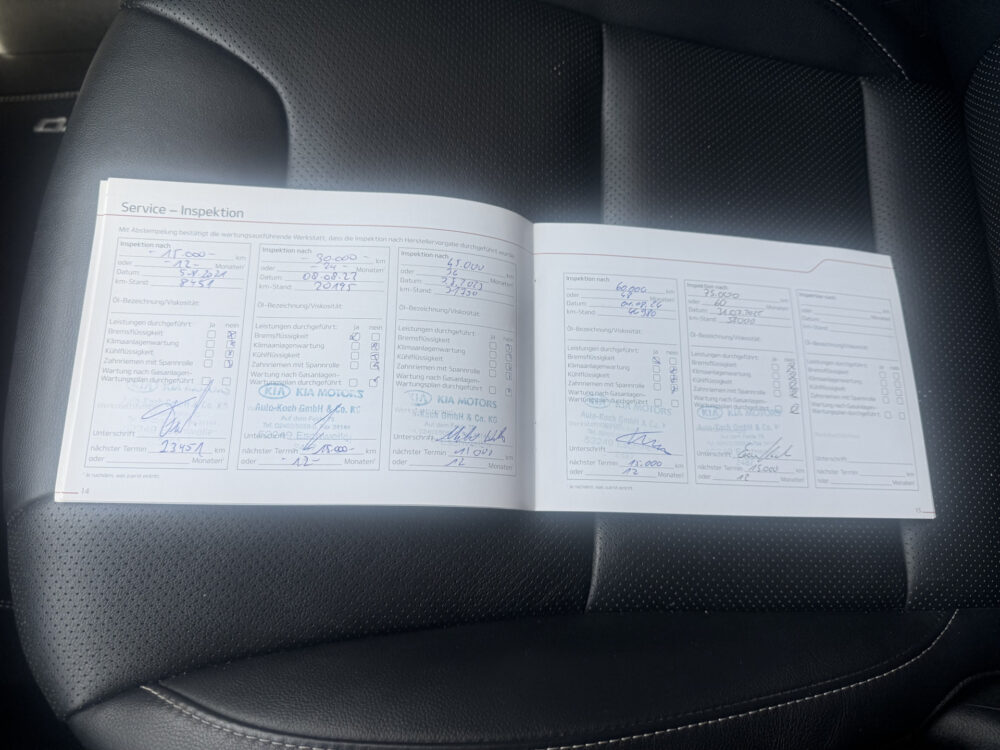 Service – Inspektion
Mit Abstempelung bestätigt die wartungsausführende Werkstatt, dass die Inspektion nach Herstellervorgabe durchgeführt wurde.
Inspektion nach
- 15.000 - km
oder - 12 - Monaten¹
Datum 5.8.2021
km-Stand: 8451
Öl-Bezeichnung/Viskosität:
Leistungen durchgeführt: ja nein
Bremsflüssigkeit
Klimaanlagenwartung
Kühlflüssigkeit
Zahnriemen mit Spannrolle
Wartung nach Gasanlagen-
Wartungsplan durchgeführt
Unterschrift
nächster Termin 23451 km
oder Monaten¹
¹ Je nachdem, was zuerst eintritt.
14
Inspektion nach
- 30.000 - km
oder - 24 - Monaten¹
Datum: 08.08.22
km-Stand: 20195
Öl-Bezeichnung/Viskosität:
Leistungen durchgeführt: ja nein
Bremsflüssigkeit
Klimaanlagenwartung
Kühlflüssigkeit
Zahnriemen mit Spannrolle
Wartung nach Gasanlagen-
Wartungsplan durchgeführt
KIA KIA MOTORS
Auto-Koch GmbH & Co. KG
Unterschrift
nächster Termin - 15.000 - km
oder - 12 - Monaten¹
Inspektion nach
45.000 km
oder 36 Monaten¹
Datum:
km-Stand:
Öl-Bezeichnung/Viskosität:
Leistungen durchgeführt: ja nein
Bremsflüssigkeit
Klimaanlagenwartung
Kühlflüssigkeit
Zahnriemen mit Spannrolle
Wartung nach Gasanlagen-
Wartungsplan durchgeführt
KIA KIA MOTORS
GmbH & Co. KG
Unterschrift
nächster Termin km
oder 12 Monaten¹
Inspektion nach
60.000 km
oder 48 Monaten¹
Datum:
km-Stand:
Öl-Bezeichnung/Viskosität:
Leistungen durchgeführt: ja nein
Bremsflüssigkeit
Klimaanlagenwartung
Kühlflüssigkeit
Zahnriemen mit Spannrolle
Wartung nach Gasanlagen-
Wartungsplan durchgeführt
KIA MOTORS
Auto-Koch GmbH & Co. KG
Unterschrift
nächster Termin 15.000 km
oder 12 Monaten¹
¹ Je nachdem, was zuerst eintritt.
Inspektion nach
75.000 km
oder 60 Monaten¹
Datum:
km-Stand:
Öl-Bezeichnung/Viskosität:
Leistungen durchgeführt: ja nein
Bremsflüssigkeit
Klimaanlagenwartung
Kühlflüssigkeit
Zahnriemen mit Spannrolle
Wartung nach Gasanlagen-
Wartungsplan durchgeführt
KIA KIA MOTORS
Auto-Koch GmbH & Co. KG
Unterschrift
nächster Termin 15.000 km
oder 12 Monaten¹
Inspektion nach
km
oder Monaten¹
Datum:
km-Stand:
Öl-Bezeichnung/Viskosität:
Leistungen durchgeführt: ja nein
Bremsflüssigkeit
Klimaanlagenwartung
Kühlflüssigkeit
Zahnriemen mit Spannrolle
Wartung nach Gasanlagen-
Wartungsplan durchgeführt
Unterschrift
nächster Termin km
oder Monaten¹
15